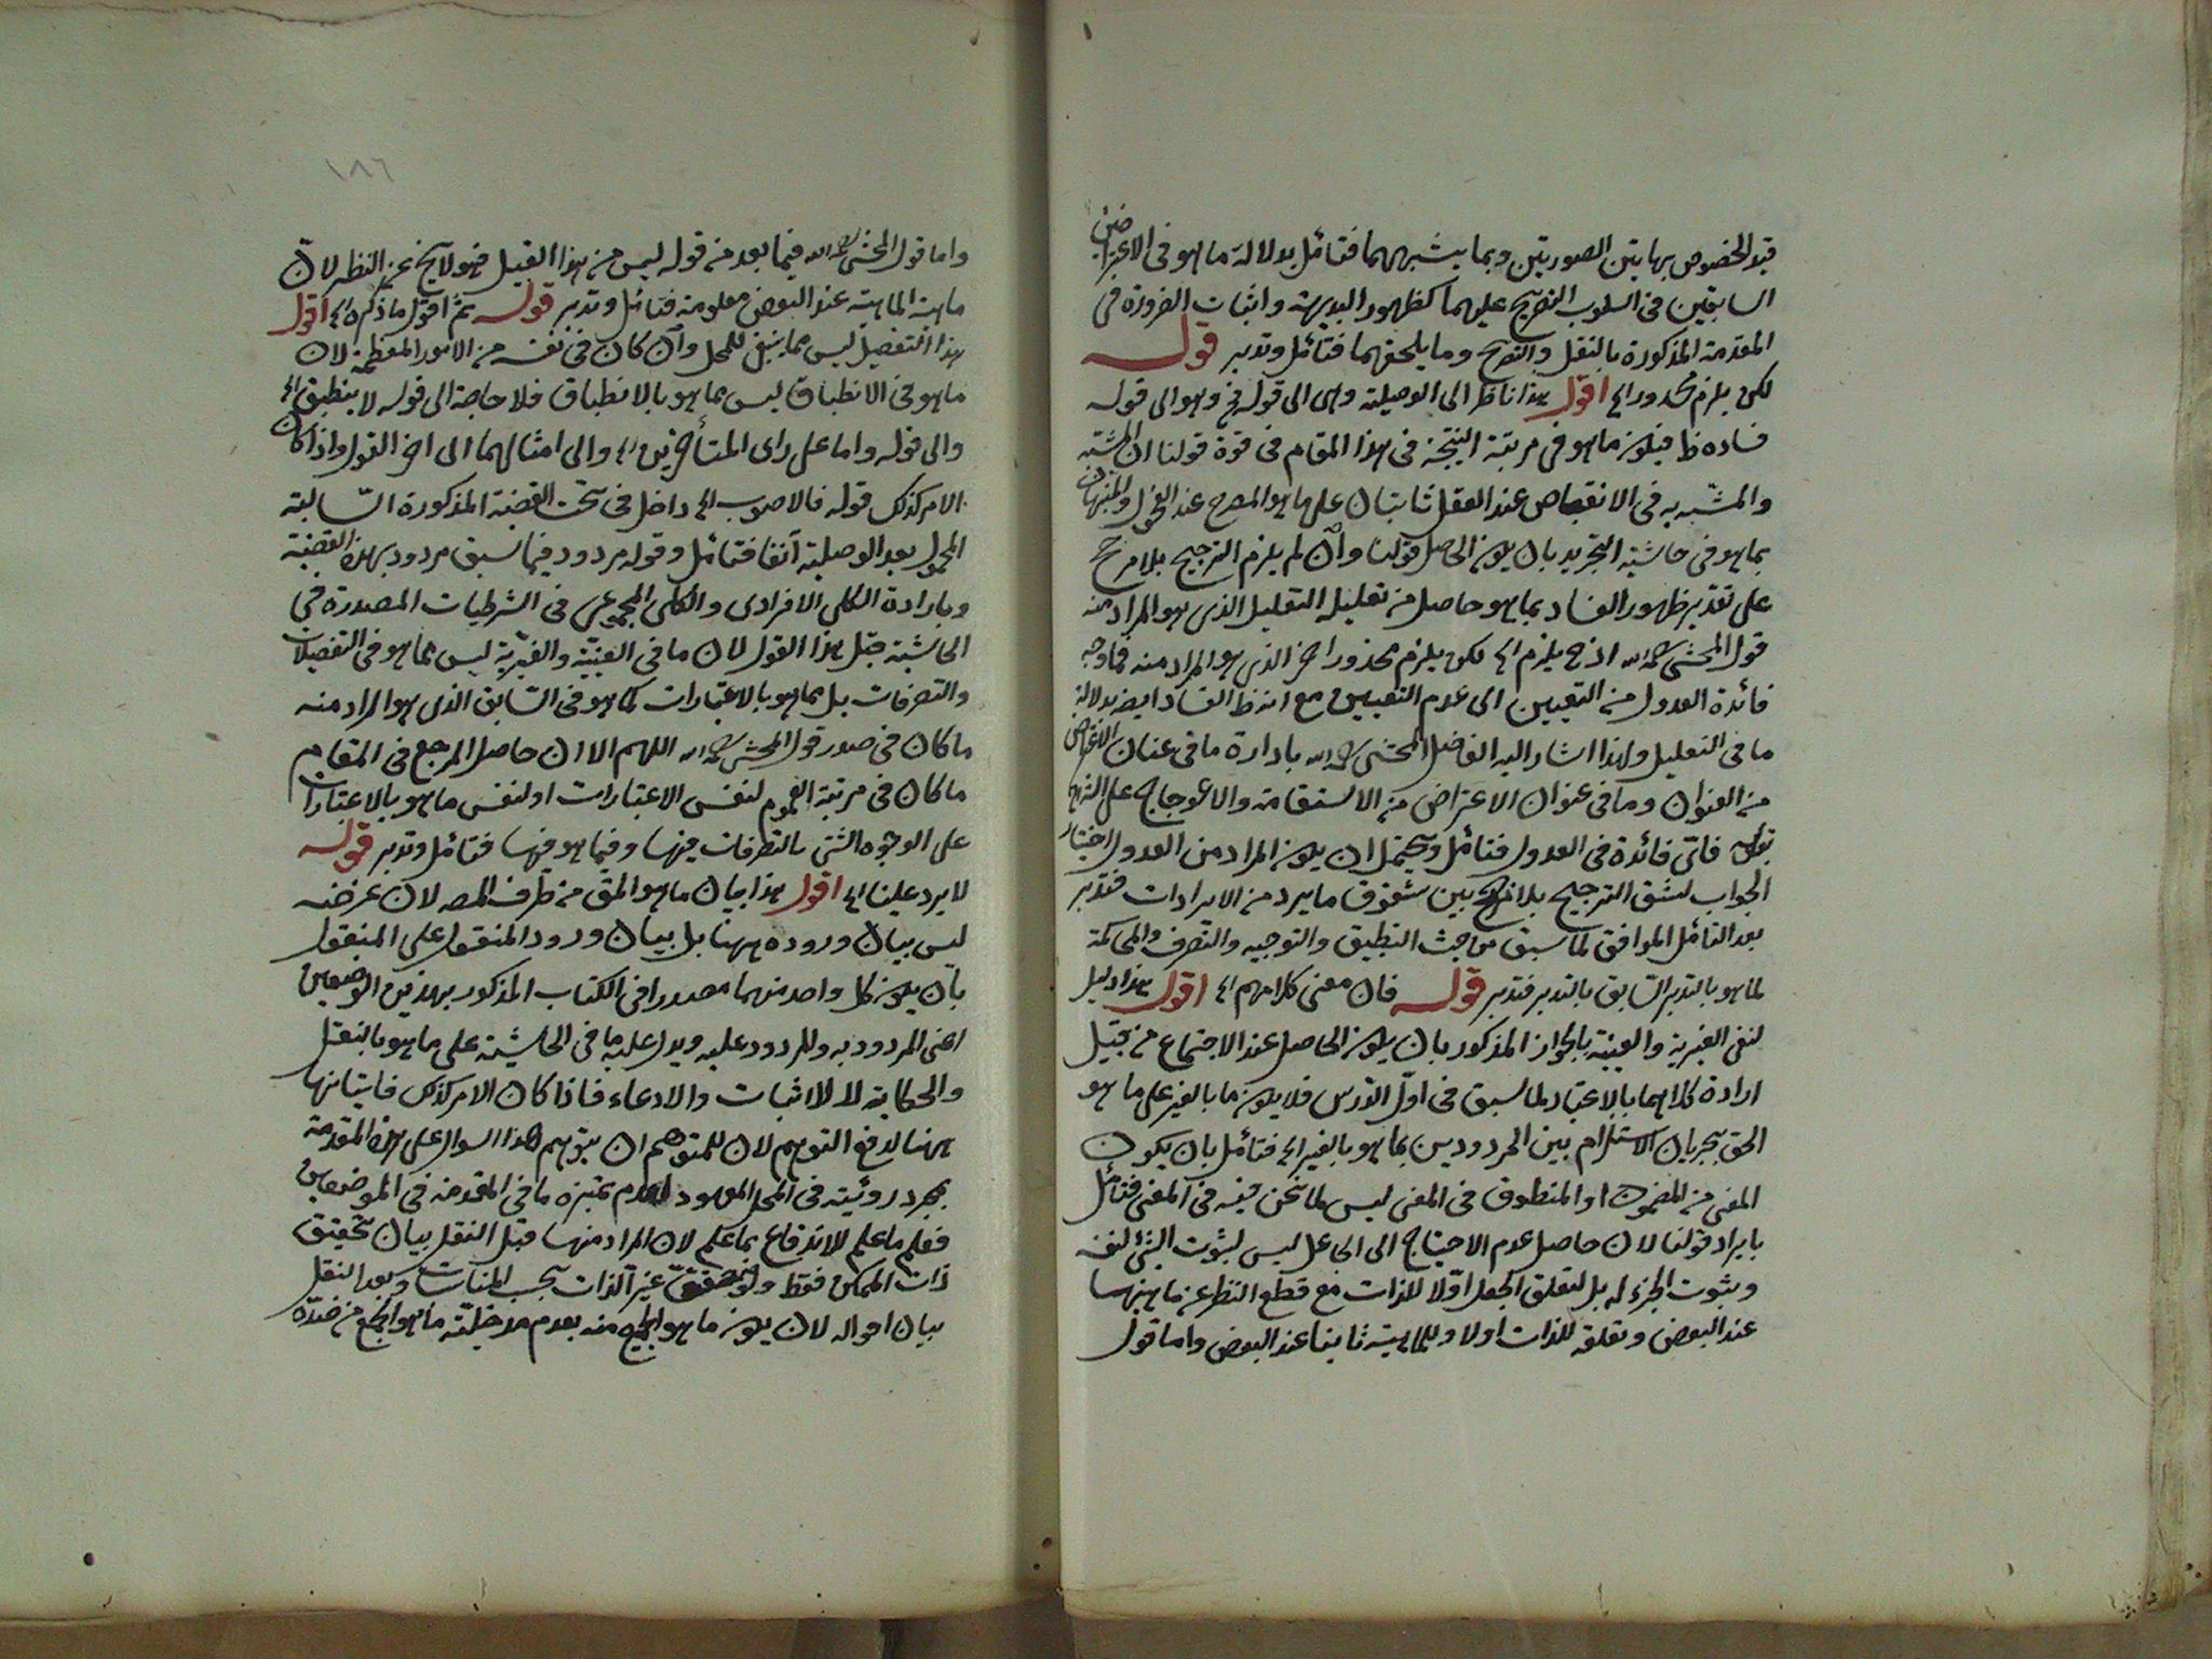 قيد الخصوص بهاتين الصورتين وبما يشبههما فتأمل بدلالة ما هو في الاعتراضين
السابقين في اسلوب التصريح عليهما كظهور البديهة واثبات الضرورة في
المقدمة المذكورة بالنقل والتصريح وما يلحقهما فتأمل وتدبر قوله
لكن يلزم محذور الخ اقول هذا ناظر الى الوصيلة وهى الى قوله فح وهو الى قوله
فساده ظ فيكون ما هو في مرتبة النتيجة في هذا المقام في قوة قولنا ان المشبه
والمشبه به في الانقصاص عند العقل ثابتان على ما هو المصرح عند الفحول والمنبهان
بما هو في حاشية التجريد بان يكون الحاصل قولنا وان لم يلزم الترجيح بلا مرجح
على تقدير ظهور الفساد بما هو حاصل من تعليله التعليل الذى هو المراد منه
قول المحشى رحمه الله اذ ح يلزم الخ لكن يلزم محذور اخر الذى هو المراد منه فما وجه
فائدة العدول من التعيين الى عدم التعيين مع انه ظ الفساد ايضا بدلالة
ما في التعليل ولهذا اشار اليه الفاضل المحشى رحمه الله بارادة ما في عنان الاعتراض
من العنوان وما في عنوان الاعتراض من الاستقامة والاعوجاج على
بقوله فاى فائدة في العدول فتأمل ويحتمل ان يكون المراد من العدول اختيار
الجواب لشق الترجيح بلا مرجح بين شقوق ما يرد من الايرادات فتدبر
بعد التأمل الموافق لما سبق من حيث التطبيق والتوجيه والتصرف والمحاكمة
لما هو بالتدبر السابق بالتدبر فتدبر قوله فان معنى كلامهم الخ اقول هذا دليل
لنفى الغيرية والعينية بالجواز المذكور بان يكون الحاصل عند الاجتماع من قبيل
ارادة كلاهما بالاعتبار لما سبق في اول الدرس فلا يكون ما بالغير على ما هو
الحق بجريان الاستلزام بين المردودين بما هو بالغير الخ فتأمل بان يكون
المعنى من المضمون او المنطوق في المعنى ليس لما نحن فيه في المعنى فتأمل
بايراد قولنا لان حاصل عدم الاحتياج الى الجاعل ليس لثبوت الشئ لنفسه
وثبوت الجزء له بل لتعلق الجعل اولا للذات مع قطع النظر عن ماهيتها
عند البعض وتعلقه للذات اولا وللماهية ثانيا عند البعض واما قول
١٨٦
واما قول المحشى رحمه الله فيما بعد من قوله ليس من هذا القبيل فهو لا يخ عن النظر لان
ماهية الماهية عند البعض معلومة فتأمل وتدبر قوله ثم اقول ما ذكره الخ اقول
هذا التفصيل ليس مما ينبغى للمحل وان كان في نفسه من الامور المعظمة لان
ما هو في الانطباق ليس مما هو بالانطباق فلا حاجة الى قوله لا ينطبق الخ
والى قوله واما على راى المتأخرين الخ والى امثالهما الى اخر القول واذا كان
الامر كذلك قوله فالاصوب الخ داخل في تحت القضية المذكورة السالبة
المحمول بعد الوصيلة آنفا فتأمل وقوله مردود فيما سبق مردود بهذه القضية
وبارادة الكلى الافرادى والكلى المجموعى في الشرطيات المصدرة في
الحاشية قبل هذا القول لان ما في العينية والغيرية ليس مما هو في التفصيلات
والتصرفات بل مما هو بالاعتبارات كما هو في السابق الذى هو المراد منه
ما كان في صدر قول المحشى رحمه الله اللهم الا ان حاصل المرجع في المقام
ما كان في مرتبة العموم لنفس الاعتبارات او لنفس ما هو بالاعتبارات
على الوجوه الشتى بالتصرفات فيها وفيما هو فيها فتأمل وتدبر قوله
لا يرد علينا الخ اقول هذا بيان ما هو الحق من طرف المص لان غرضه
ليس بيان وروده ههنا بل بيان ورود المنقول على المنقول
بان يكون كل واحد منهما مصدرا في الكتاب المذكور بهذين الوضعين
اعنى المردود به والمردود عليه ويدل عليه ما في الحاشية على ما هو بالنقل
والحكاية لا للاثبات والادعاء فاذا كان الامر كذلك فاتيانها
ههنا لدفع التوهم لان للمتوهم ان يتوهم هذا السؤال على هذه المقدمة
بمجرد رؤيته في المحل المعهود لعدم تميزه ما في المقدمة في الموضعين
فعلم ما علم للاندفاع بما علم لان المراد منها قبل النقل بيان تحقيق
ذات الممكن فقط ولو تحقق غير الذات بحسب المناسبات وبعد النقل
بيان احواله لان يكون ما هو الجمع منه بعدم مدخلية ما هو الجمع من ضده